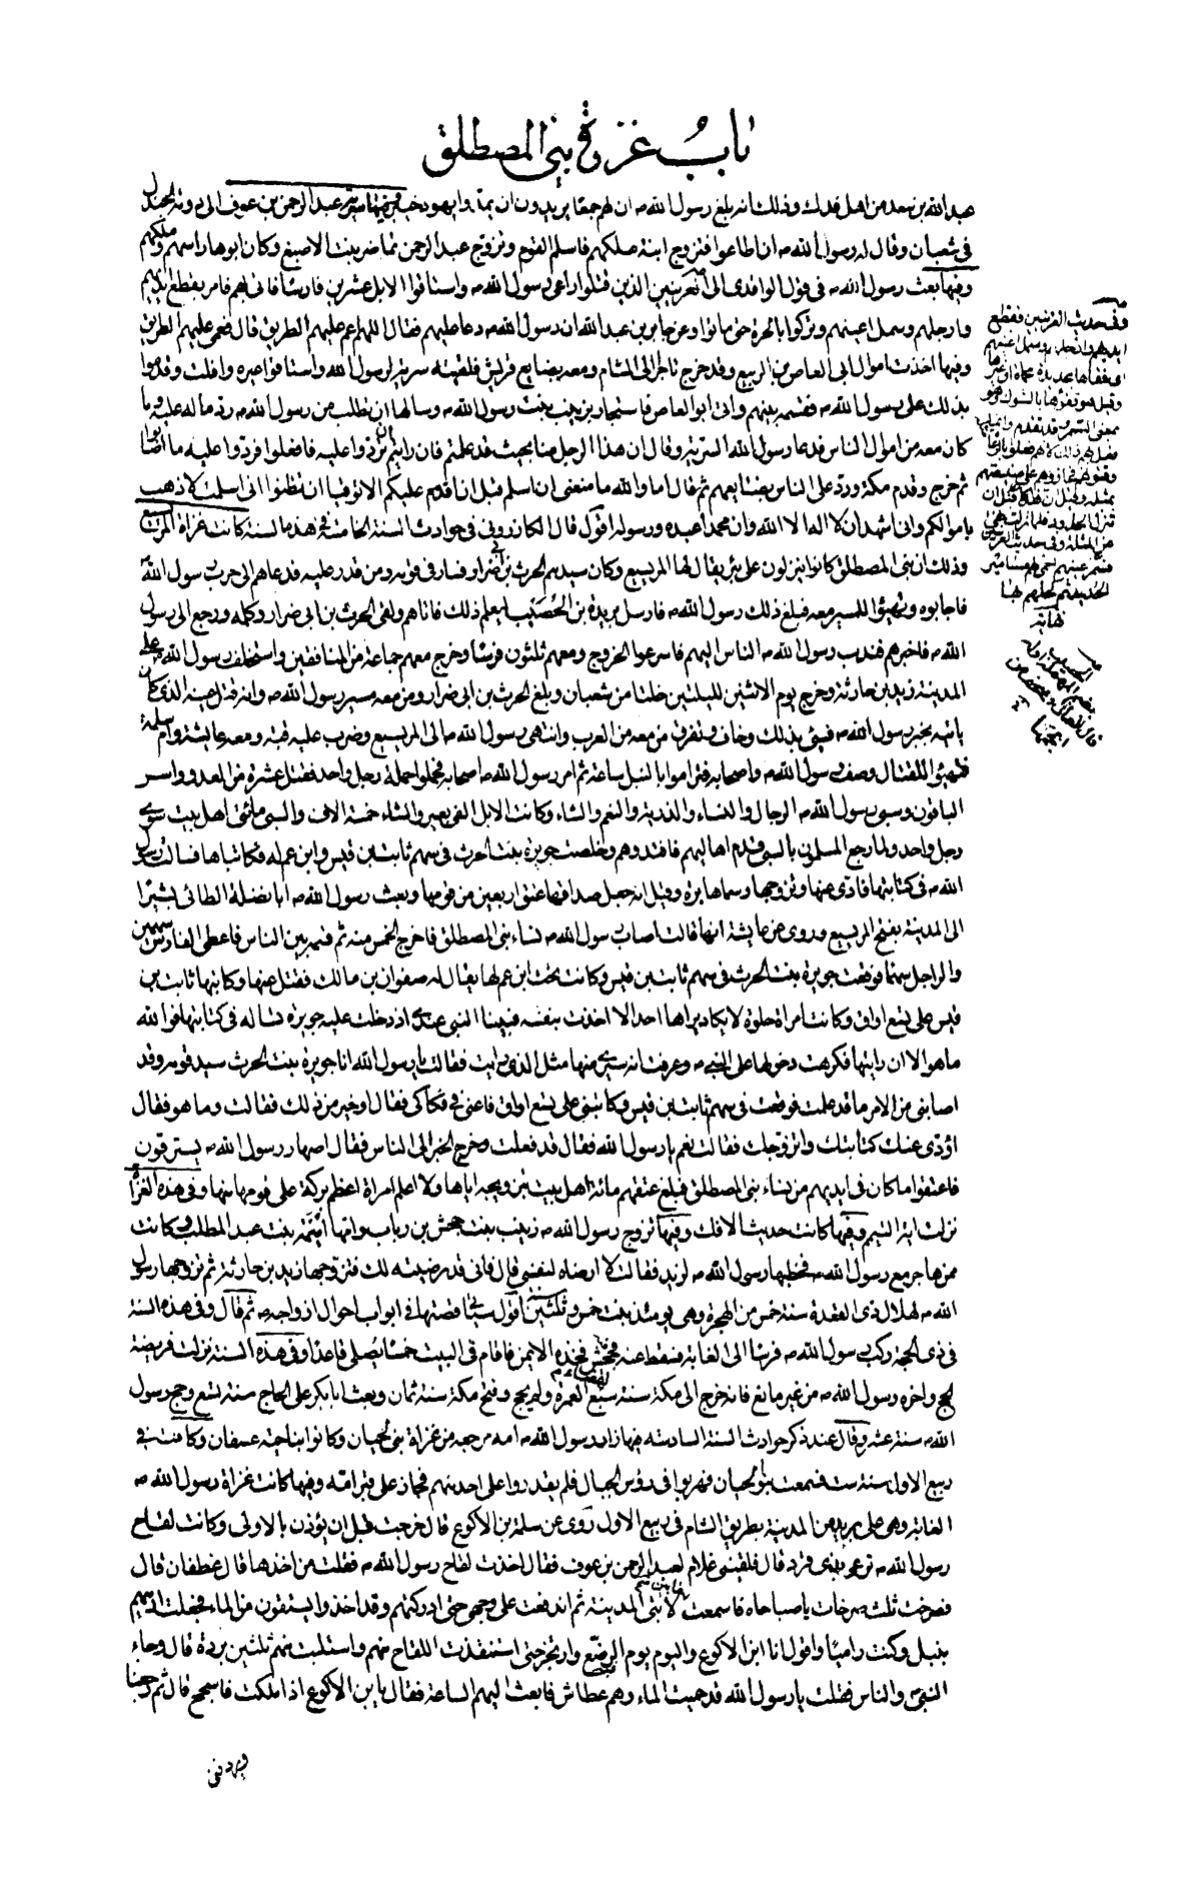 باب غزوة بني المصطلق
عبد الله بن سعد من اهل فدك وذلك انه بلغ رسول الله ص ان لهم جمعا يريدون ان يمدوا يهود خيبر وفيها سرية عبد الرحمن بن عوف الى دومة الجندل
في شعبان وقال له رسول الله ص ان اطاعوا فتزوج ابنة ملكهم فاسلم القوم وتزوج عبد الرحمن تماضر بنت الاصبغ وكان ابوها راسهم وملكهم
وفيها بعث رسول الله ص في قول الواقدي الى العرنيين الذين قتلوا راعي رسول الله ص واستاقوا الابل عشرين فارسا فاتي بهم فامر بقطع ايديهم
وارجلهم وسمل اعينهم وتركوا بالحرة حتى ماتوا وعن جابر بن عبد الله ان رسول الله ص دعا عليهم فقال اللهم عم عليهم الطريق قال فعمي عليهم الطريق
وفيها اخذت اموال ابي العاص بن الربيع وقد خرج تاجرا الى الشام ومعه بضايع قريش فلقيته سرية لرسول الله واستاقوا عيره وافلت وقدموا
بذلك على رسول الله ص فقسمه بينهم واتى ابو العاص فاستجار بزينب بنت رسول الله ص وسالها ان تطلب من رسول الله ص رد ماله عليه وما
كان معه من اموال الناس فدعا رسول الله السرية وقال ان هذا الرجل منا بحيث قد علمتم فان رايتم ان تردوا عليه فافعلوا فردوا عليه ما اصابوا
ثم خرج وقدم مكة ورد على الناس بضايعهم ثم قال اما والله ما منعني ان اسلم قبل ان اقدم عليكم الا توقيا ان تظنوا اني اسلمت لاذهب
باموالكم واني اشهد ان لا اله الا الله وان محمدا عبده ورسوله اقول قال الكازروني في حوادث السنة الخامسة في هذه السنة كانت غزاة المريسيع
وذلك ان بني المصطلق كانوا ينزلون على بئر يقال لها المريسيع وكان سيدهم الحرث بن ابي ضرار فسار في قومه ومن قدر عليه فدعاهم الى حرب رسول الله
فاجابوه وتهيئوا للمسير معه فبلغ ذلك رسول الله ص فارسل بريدة بن الحصيب ليعلم ذلك فاتاهم ولقي الحرث بن ابي ضرار وكلمه ورجع الى رسول
الله ص فاخبرهم فندب رسول الله ص الناس اليهم فاسرعوا الخروج ومعهم ثلثون فرسا وخرج معهم جماعة من المنافقين واستخلف رسول الله ص على
المدينة زيد بن حارثة وخرج يوم الاثنين لليلتين خلتا من شعبان وبلغ الحرث بن ابي ضرار ومن معه مسير رسول الله ص وانه قتل عينه الذي كان
ياتيه بخبر رسول الله ص فسيئ بذلك وخاف وتفرق من معه من العرب وانتهى رسول الله ص الى المريسيع وضرب عليه قبته ومعه عايشة وام سلمة
فتهيئوا للقتال وصف رسول الله ص واصحابه فتراموا بالنبل ساعة ثم امر رسول الله ص اصحابه فحملوا حملة رجل واحد فقتل عشرة من العدو واسر
الباقون وسبى رسول الله ص الرجال والنساء والذرية والنعم والشاء وكانت الابل الفي بعير والشاء خمسة الاف والسبي مائتي اهل بيت سوى
رجل واحد ولما رجع المسلمون بالسبي قدم اهاليهم فافتدوهم وخلصت جويرة بنت الحرث في سهم ثابت بن قيس وابن عم له فكاتباها فسالت رسول
الله ص في كتابتها فادى عنها وتزوجها وسماها برة وقيل انه جعل صداقها عتق اربعين من قومها وبعث رسول الله ص ابا نضلة الطائي بشيرا
الى المدينة بفتح المريسيع وروي عن عايشة انها قالت اصاب رسول الله ص نساء بني المصطلق فاخرج الخمس منه ثم قسمه بين الناس فاعطى الفارس سهمين
والراجل سهما فوقعت جويرة بنت الحرث في سهم ثابت بن قيس وكانت تحت ابن عم لها يقال له صفوان بن مالك فقتل عنها وكاتبها ثابت بن
قيس على تسع اواق وكانت امراة حلوة لا يكاد يراها احد الا اخذت بنفسه فبينا النبي عندي اذ دخلت عليه جويرة تساله في كتابتها فوالله
ما هو الا ان رايتها فكرهت دخولها على النبي ص وعرفت انه سيرى منها مثل الذي رايت فقالت يا رسول الله انا جويرة بنت الحرث سيد قومه وقد
اصابني من الامر ما قد علمت فوقعت في سهم ثابت بن قيس وكاتبني على تسع اواق فاعني في فكاكي فقال او خير من ذلك فقالت وما هو فقال
اؤدي عنك كتابتك واتزوجك فقالت نعم يا رسول الله فقال قد فعلت وخرج الخبر الى الناس فقال اصهار رسول الله ص يسترقون
فاعتقوا ما كان في ايديهم من نساء بني المصطلق فبلغ عتقهم مائة اهل بيت بتزويجه اياها ولا اعلم امراة اعظم بركة على قومها منها وفي هذه الغزاة
نزلت اية التيمم وفيها كانت حديث الافك وفيها تزوج رسول الله ص زينب بنت جحش بن رياب وامها اميمة بنت عبد المطلب وكانت
ممن هاجر مع رسول الله ص فخطبها رسول الله ص لزيد فقالت لا ارضاه لنفسي قال فاني قد رضيته لك فتزوجها زيد بن حارثة ثم تزوجها رسول
الله ص لهلال ذي القعدة سنة خمس من الهجرة وهي يومئذ بنت خمس وثلثين اقول سياتي قصتها في ابواب احوال ازواجه ص ثم قال وفي هذه السنة
في ذي الحجة ركب رسول الله ص فرسا الى الغابة فسقط عنه فجحش فخذه الايمن فاقام في البيت خمسا يصلي قاعدا وفي هذه السنة نزلت فريضة
الحج واخره رسول الله ص من غير مانع فانه خرج الى مكة سنة سبع لقضاء العمرة ولم يحج وفتح مكة سنة ثمان وبعث ابا بكر على الحاج سنة تسع وحج رسول
الله ص سنة عشر وقال عند ذكر حوادث السنة السادسة فيها زار رسول الله ص امه مرجعه من غزاة بني لحيان وكانوا بناحية عسفان وكانت في
ربيع الاول سنة ست فسمعت بنو لحيان فهربوا في رؤس الجبال فلم يقدروا على احد منهم فجاز على قبر امه وفيها كانت غزاة رسول الله ص
الغابة وهي على بريد من المدينة بطريق الشام في ربيع الاول روي عن سلمة بن الاكوع قال خرجت قبل ان يؤذن بالاولى وكانت لقاح
رسول الله ص ترعى بذي قرد قال فلقيني غلام لعبد الرحمن بن عوف فقال اخذت لقاح رسول الله ص فقلت من اخذها قال غطفان قال
فصرخت ثلث صرخات يا صباحاه فاسمعت ما بين لابتي المدينة ثم اندفعت على وجهي حتى ادركتهم وقد اخذوا يستقون من الماء فجعلت ارميهم
بنبلي وكنت راميا واقول انا ابن الاكوع واليوم يوم الرضع وارتجز حتى استنقذت اللقاح منهم واستلبت منهم ثلثين بردة قال وجاء
النبي ص والناس فقلت يا رسول الله قد حميت الماء وهم عطاش فابعث اليهم الساعة فقال يا بن الاكوع اذا ملكت فاسجح قال ثم رجعنا
ويردفني
وفي حديث العرنيين فقطع
ايديهم وارجلهم وسمل اعينهم
اي فقاها بحديدة محماة او غيرها
وقيل هو فقؤها بالشوك وهو
بمعنى السمر وقد تقدم وانما
فعل بهم ذلك لانهم فعلوا بالرعاة
وقتلوهم فجازاهم على صنيعهم
بمثله وقيل ان هذا كان قبل ان
تنزل الحدود فلما نزلت نهى
عن المثلة وفي حديث العرنيين
فسمر اعينهم اي احمى لهم مسامير
الحديد ثم كحلهم بها
نهاية